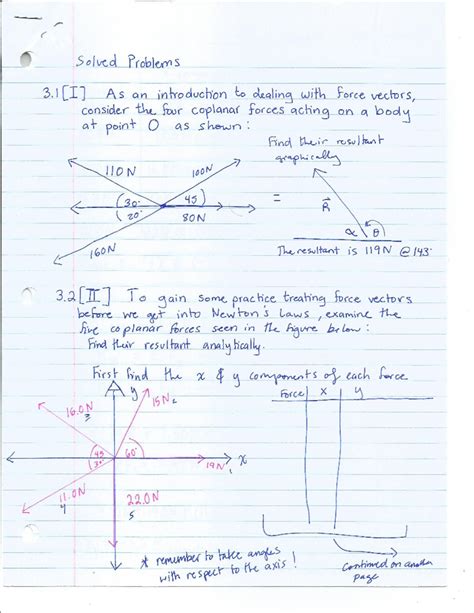 Solved Problems
3.1 [I] As an introduction to dealing with force vectors,
consider the four coplanar forces acting on a body
at point O as shown:
Find their resultant
graphically
110N
100N
(30°
45)
(20°
80N
160N
=
R
α θ
The resultant is 119N @ 143°
3.2 [II] To gain some practice treating force vectors
before we get into Newton's Laws, examine the
five coplanar forces seen in the figure below:
Find their resultant analytically.
First find the x & y components of each force
y
Force x y
16.0N
3
15N 2
45
30°
60°
19N 1
x
11.0N
4
22.0N
5
* remember to take angles
with respect to the axis!
Continued on another
page